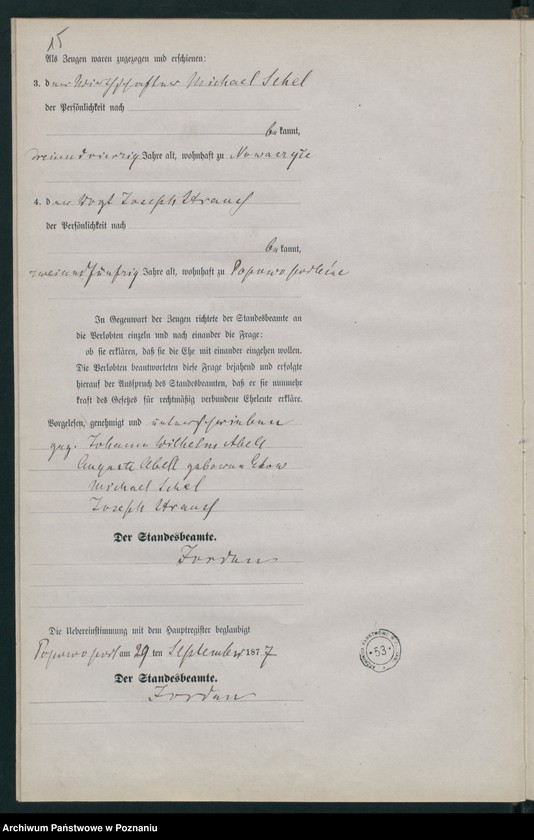 15
Als Zeugen waren zugezogen und erschienen:
3. der Wirthschafter Michael Schel
der Persönlichkeit nach
be kannt,
dreiundvierzig Jahre alt, wohnhaft zu
4. der Vogt Joseph Strauch
der Persönlichkeit nach
be kannt,
zweiundfünfzig Jahre alt, wohnhaft zu Popowo podleśne
In Gegenwart der Zeugen richtete der Standesbeamte an
die Verlobten einzeln und nach einander die Frage:
ob sie erklären, daß sie die Ehe mit einander eingehen wollen.
Die Verlobten beantworteten diese Frage bejahend und erfolgte
hierauf der Ausspruch des Standesbeamten, daß er sie nunmehr
kraft des Gesetzes für rechtmäßig verbundene Eheleute erkläre.
Vorgelesen, genehmigt und unterschrieben
gez. Johann Wilhelm Abelt
Auguste Abelt geborene
Michael Schel
Joseph Strauch
Der Standesbeamte.
Jordan
Die Uebereinstimmung mit dem Hauptregister beglaubigt
am 29 ten September 187 7
Der Standesbeamte.
Jordan
53
Archiwum Państwowe w Poznaniu